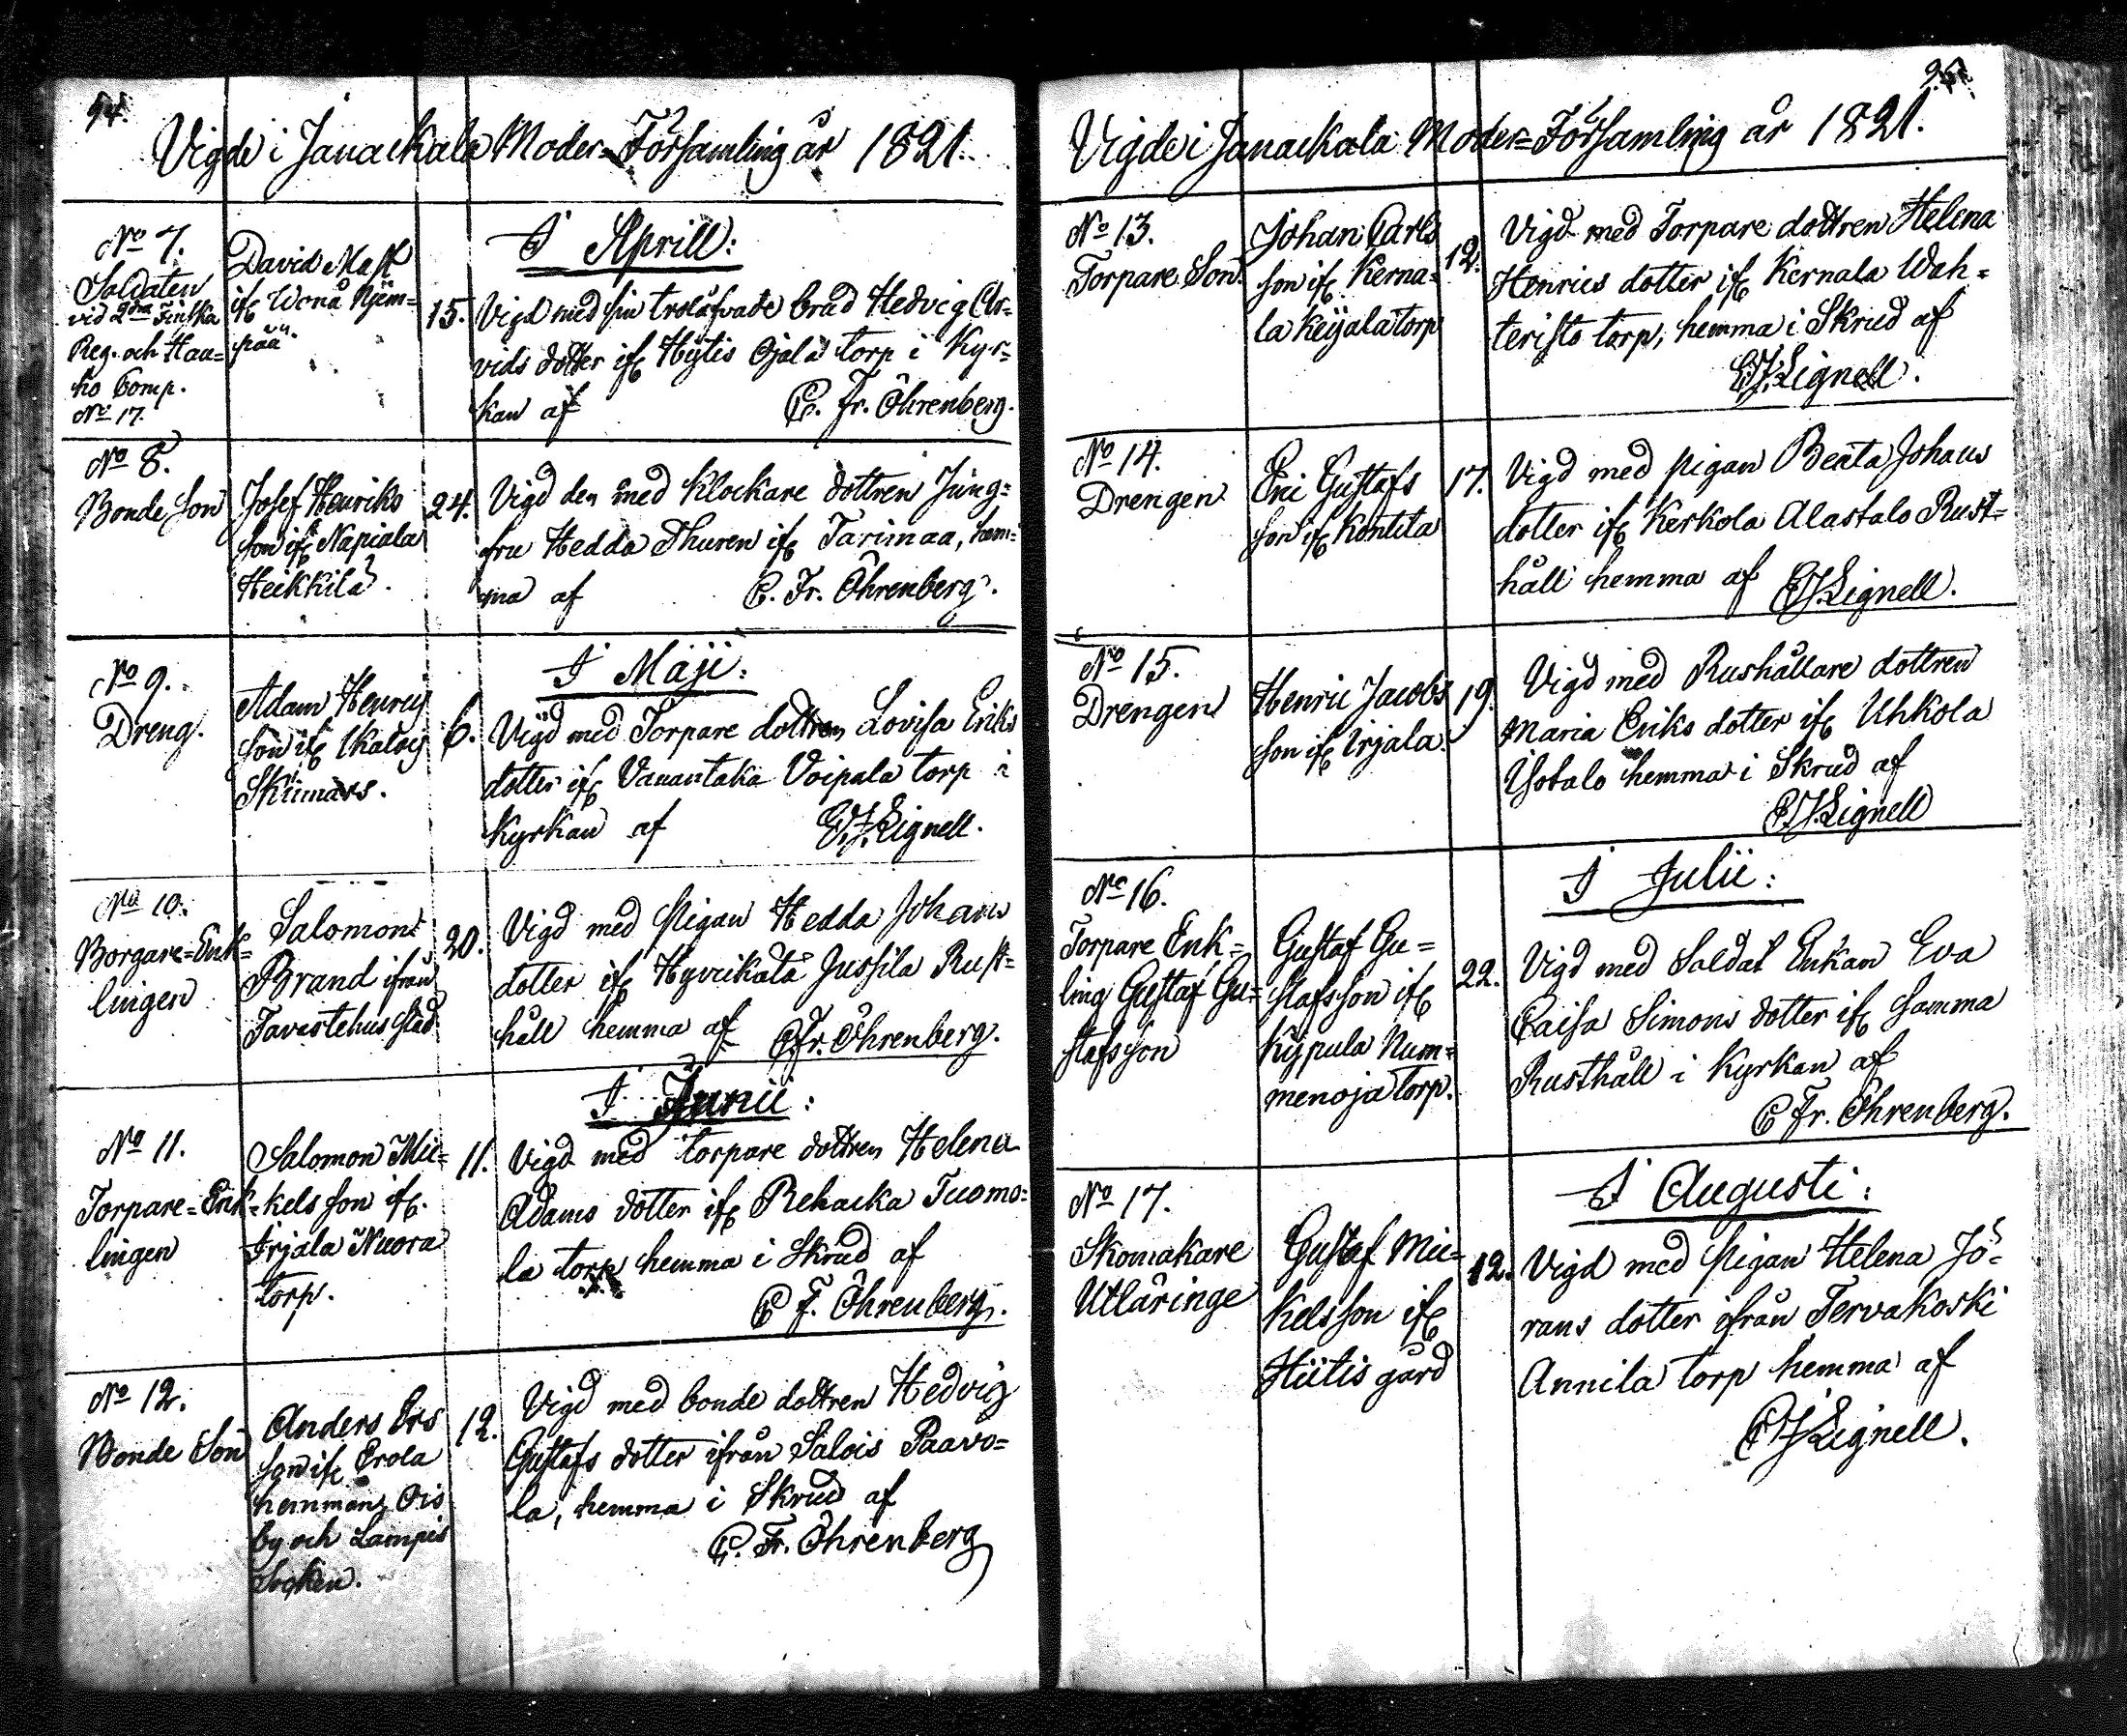 94.
Vigde i Janackala Moder=Församling år 1821.
I Aprill:
No 7.
Soldaten
vid 2dra Finska
Reg. och Hau=
ho Comp.
No 17.
David Mast
ifr Worå Njëm=
pää.
15.
Vigd med sin trolåfvade brud Hedvig Ar=
vids dotter ifr Hÿtis Ojala torp i Kyr=
kan af C. Fr. Öhrenberg.
No 8.
Bonde Son
Josef Henriks
son ifr Napiala
Heikkilä.
24.
Vigd den med Klockare dottren Jung=
fru Hedda Thuren ifr Tarimaa, hem=
ma af C. Fr. Öhrenberg.
I Maji:
No 9.
Dreng.
Adam Henrics
son ifr Ikalois
6.
Vigd med Torpare dottren Lovisa Eriks
dotter ifr Vanantaka Voipala torp i
Kyrkan af C. J. Lignell.
No 10.
Borgare=Enk=
lingen
Salomon
Brand ifrån
Tavastehus stad
20.
Vigd med Pigan Hedda Johans
dotter ifr Hyvikälä Jussila Rust=
håll hemma af C. Fr. Öhrenberg.
I Junii:
No 11.
Torpare=Enk=
lingen
Salomon Mic=
kels son ifr
Irjala Nuora
torp.
11.
Vigd med torpare dottren Helena
Adams dotter ifr Rehacka Tuomo=
la torp hemma i Skrud af
C F. Öhrenberg.
No 12.
Bonde Son
Anders Ers
son ifr Erola
hemman, Ois
by och Lampis
Socken.
12.
Vigd med bonde dottren Hedvig
Gustafs dotter ifrån Salois Paavo=
la, hemma i Skrud af
C. Fr. Öhrenberg
95.
Vigde i Janackala Moder=Församling år 1821.
No 13.
Torpare Son.
Johan Carls
son ifr Kerna=
la Keijala torp
12.
Vigd med Torpare dottren Helena
Henrics dotter ifr Kernala Wah=
teristo torp, hemma i Skrud af
C J. Lignell.
No 14.
Drengen
Eric Gustafs
son ifr Kontila
17.
Vigd med pigan Beata Johans
dotter ifr Kerkola Alastalo Rust=
håll hemma af C J. Lignell.
No 15.
Drengen
Henric Jacobs
son ifr Irjala.
19.
Vigd med Rushållare dottren
Maria Eriks dotter ifr Uhkola
Isotalo hemma i Skrud af
C J. Lignell
I Julii:
No 16.
Torpare Enk=
ling Gustaf Gu=
stafsson
Gustaf Gu=
stafsson ifr
Kÿpula Num=
menoja torp.
22.
Vigd med Soldat Enkan Eva
Caisa Simons dotter ifr samma
Rusthåll i Kyrkan af
C Fr. Öhrenberg.
I Augusti:
No 17.
Skomakare
Utläringe
Gustaf Mic=
kelsson ifr
Hiitis gård
12.
Vigd med Pigan Helena Jö=
rans dotter ifrån Tervakoski
Annila torp hemma af
C J Lignell.